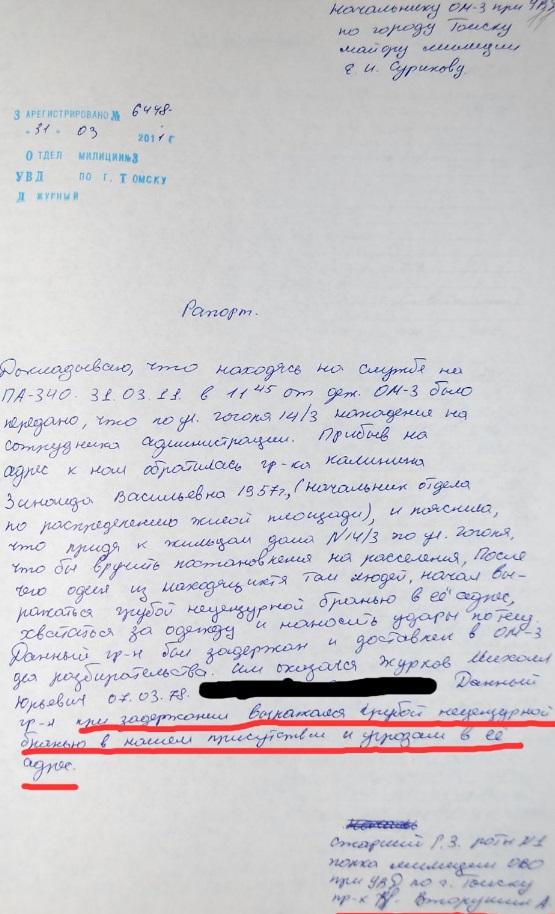 Начальнику ОМ-3 при УВД
по городу Томску
майору милиции
Е. И. Сурикову.
ЗАРЕГИСТРИРОВАНО № 6448
"31" 03 2011 г
ОТДЕЛ МИЛИЦИИ №3
УВД ПО Г. ТОМСКУ
Д ЖУРНЫЙ
Рапорт.
Докладываю, что находясь на службе на
ПА-340. 31.03.11. в 11 45 от деж. ОМ-3 было
передано, что по ул. Гоголя 14/3 нападение на
сотрудника администрации. Прибыв на
адрес к нам обратилась гр-ка Калинина
Зинаида Васильевна 1957г, (начальник отдела
по распределению жилой площади), и пояснила,
что придя к жильцам дома №14/3 по ул. Гоголя,
что бы вручить постановления на расселения, После
чего один из находящихтя там людей, начал вы-
ражаться грубой нецензурной бранью в её адрес,
хвататься за одежду и наносить удары по телу.
Данный гр-н был задержан и доставлен в ОМ-3
для разбирательства. Им оказался Журков Михаил
Юрьевич 07.03.78. Данный
гр-н при задержании выражался грубой нецензурной
бранью в нашем присутствии и угрозам в её
адрес.
старший Г.З. роты №1
полка милиции ОВО
при УВД по г. Томску
пр-к